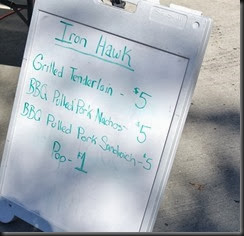 Iron Hawk
Grilled Tenderloin - $5
BBQ Pulled Pork Nachos - $5
BBQ Pulled Pork Sandwich - $5
Pop - $1